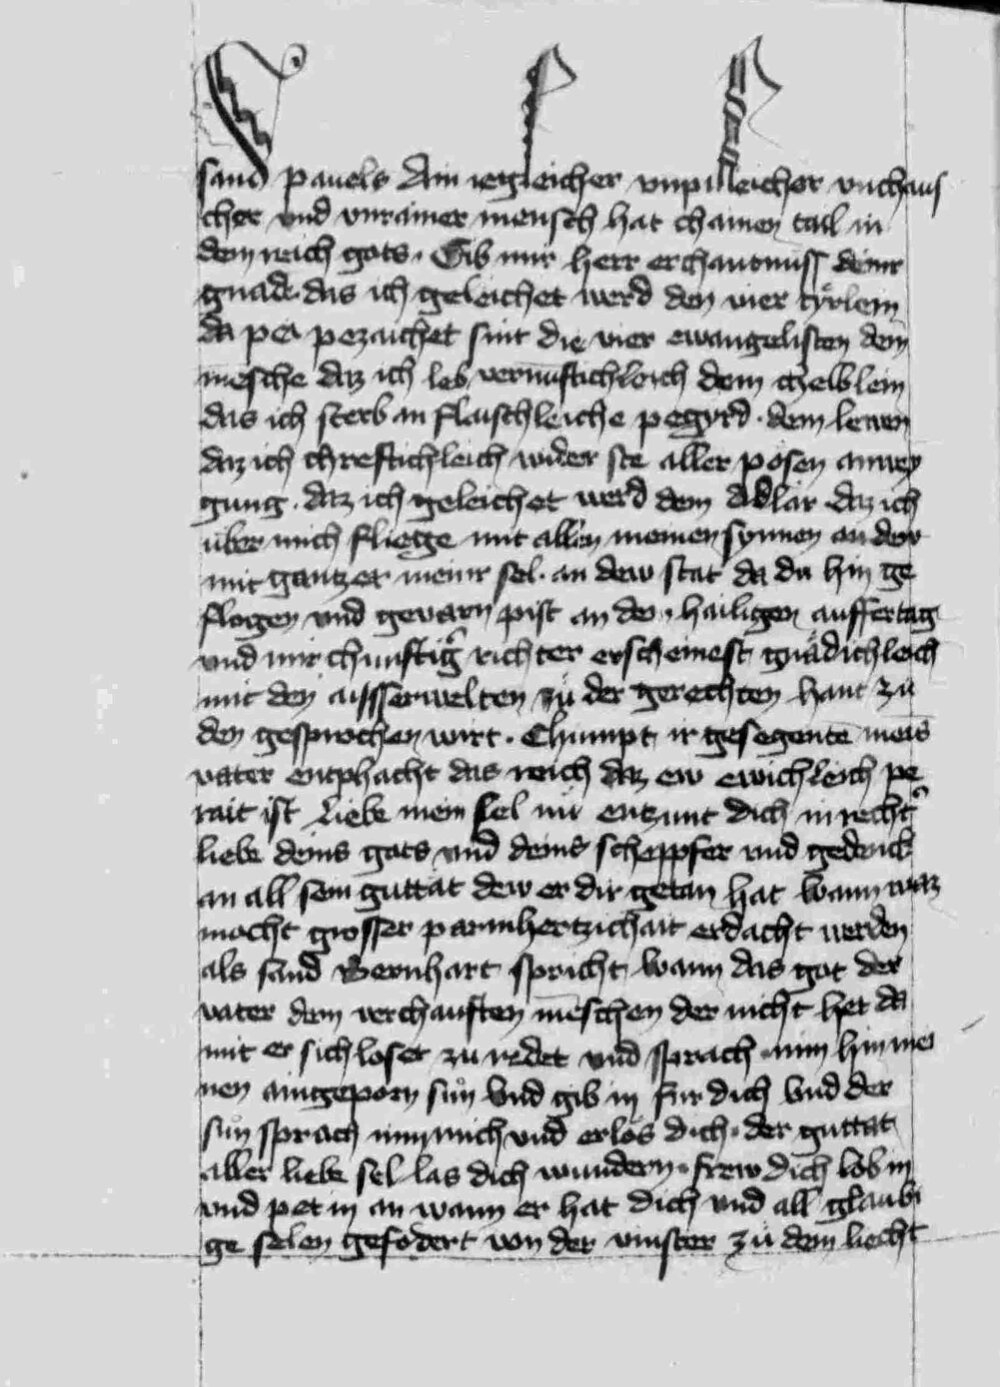 sand pauels Ain iegleicher vnpilleicher vnchaus
cher vnd vnrainer mensch hat chainen tail in
dem reich gots. Gib mir herr erchantnuss deinr
gnade das ich geleichet werd den vier tyrlein
da pei pezaichet sint die vier ewangelisten dem
mēsche daz ich leb vernuftichleich dem chelblein
das ich sterb an flaischleiche pegyrd. dem lewen
daz ich chreftichleich wider ste aller pösen anwey
gung. daz ich geleichet werd dem Adlar daz ich
über mich fliege mit allen meinen synnen an dew
mit gantzer meinr sel. an dew stat da du hin ge
flogen vnd geuarn pist an dem hailigen auffertag
vnd mir chunftigr richter erscheinest gnädichleich
mit den ausserwelten zü der gerechten hant zu
den gesprochen wirt. Chumpt ir gesegente meīs
vater enphacht das reich daz ew ewichleich pe
rait ist Liebe mein sel nü entzunt dich in rechtr
liebe deins gots vnd deins scheppfer vnd gedenck
an all sein guttät dew er dir getan hat wann waz
mocht grosser parmhertzichait erdacht werden
als sand Bernhart spricht wann das got der
vater dem verchauften mēschen der nicht het da
mit er sich loset zu redet vnd sprach nim hin mei
nen aingeporn sun Vnd gib in für dich Vnd der
sun sprach nim mich vnd erlös dich. der guttat
aller liebe sel las dich wundern. frew dich lob in
vnd pet in an wann er hat dich vnd all glaubi
ge selen gefodert von der vinster zü dem liecht